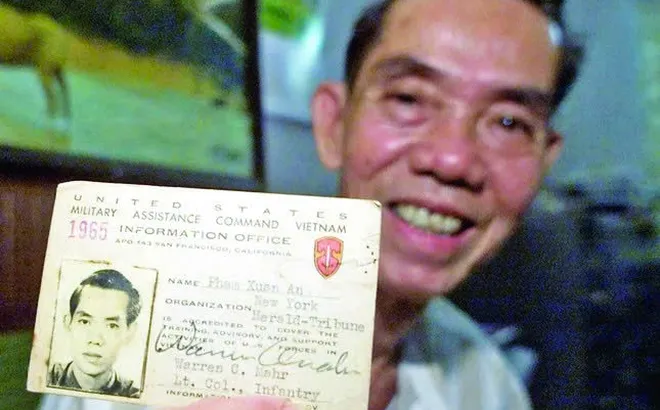 UNITED STATES
MILITARY ASSISTANCE COMMAND VIETNAM
1965 INFORMATION OFFICE
APO 143 SAN FRANCISCO, CALIFORNIA
NAME Pham Xuan An
ORGANIZATION New York
Herald-Tribune
IS ACCREDITED TO COVER THE
TRAINING, ADVISORY, AND SUPPORT
ACTIVITIES OF U.S. FORCES IN
Warres C. Mahr
Lt. Col., Infantry